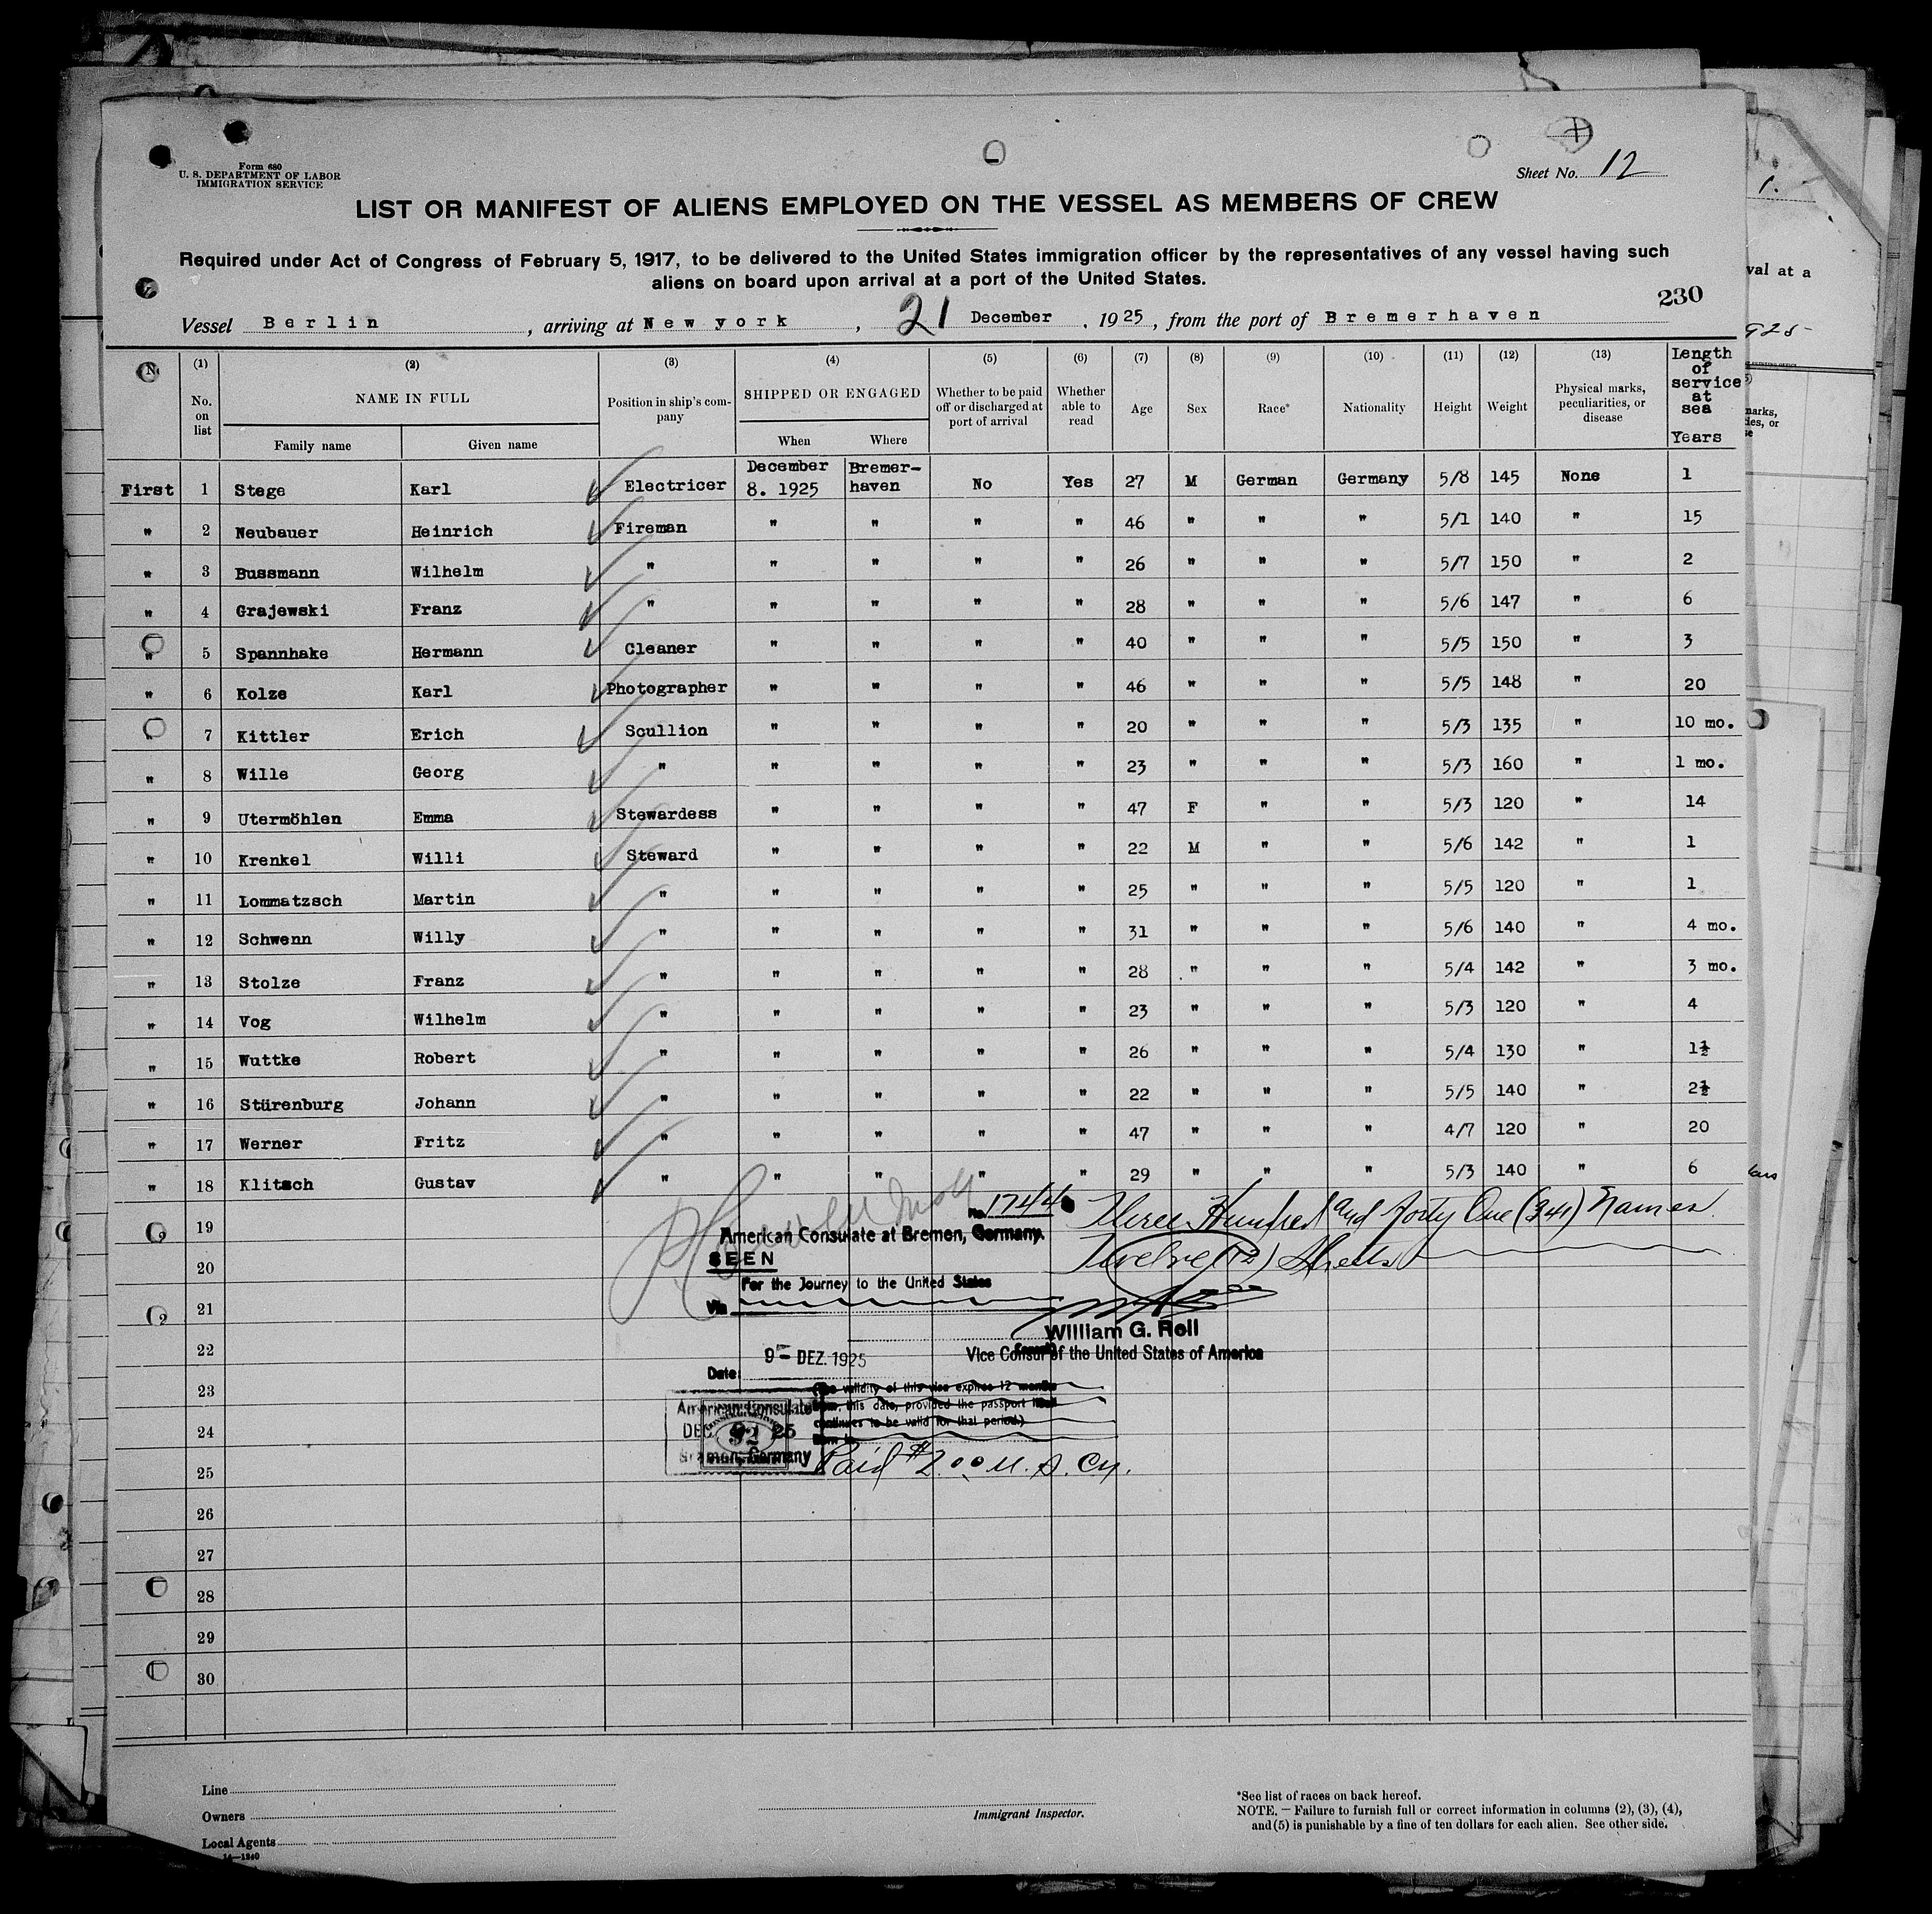 Form 680
U. S. DEPARTMENT OF LABOR
IMMIGRATION SERVICE
Sheet No. 12
LIST OR MANIFEST OF ALIENS EMPLOYED ON THE VESSEL AS MEMBERS OF CREW
Required under Act of Congress of February 5, 1917, to be delivered to the United States immigration officer by the representatives of any vessel having such
aliens on board upon arrival at a port of the United States.
230
Vessel Berlin, arriving at New york, 21 December, 1925, from the port of Bremerhaven
(1) (2) (3) (4) (5) (6) (7) (8) (9) (10) (11) (12) (13)
No. on list NAME IN FULL Family name Given name Position in ship's company SHIPPED OR ENGAGED When Where Whether to be paid off or discharged at port of arrival Whether able to read Age Sex Race* Nationality Height Weight Physical marks, peculiarities, or disease Length of service at sea Years
First 1 Stege Karl Electricer December 8. 1925 Bremer-haven No Yes 27 M German Germany 5/8 145 None 1
" 2 Neubauer Heinrich Fireman " " " " 46 " " " 5/1 140 " 15
" 3 Bussmann Wilhelm " " " " " 26 " " " 5/7 150 " 2
" 4 Grajewski Franz " " " " " 28 " " " 5/6 147 " 6
" 5 Spannhake Hermann Cleaner " " " " 40 " " " 5/5 150 " 3
" 6 Kolze Karl Photographer " " " " 46 " " " 5/5 148 " 20
" 7 Kittler Erich Scullion " " " " 20 " " " 5/3 135 " 10 mo.
" 8 Wille Georg " " " " " 23 " " " 5/3 160 " 1 mo.
" 9 Utermöhlen Emma Stewardess " " " " 47 F " " 5/3 120 " 14
" 10 Krenkel Willi Steward " " " " 22 M " " 5/6 142 " 1
" 11 Lommatzsch Martin " " " " " 25 " " " 5/5 120 " 1
" 12 Schwenn Willy " " " " " 31 " " " 5/6 140 " 4 mo.
" 13 Stolze Franz " " " " " 28 " " " 5/4 142 " 3 mo.
" 14 Vog Wilhelm " " " " " 23 " " " 5/3 120 " 4
" 15 Wuttke Robert " " " " " 26 " " " 5/4 130 " 1½
" 16 Stürenburg Johann " " " " " 22 " " " 5/5 140 " 2½
" 17 Werner Fritz " " " " " 47 " " " 4/7 120 " 20
" 18 Klitsch Gustav " " " " " 29 " " " 5/3 140 " 6
19
20
21
22
23
24
25
26
27
28
29
30
No.
Three Hundred and Forty One (341) Names
American Consulate at Bremen, Germany.
Twelve (12) Sheets
SEEN
For the Journey to the United States
Via
William G. Roll
Vice Consul of the United States of America
Date: 9 - DEZ. 1925
(The validity of this visa expires 12 months
from this date, provided the passport
continues to be valid for that period.)
American Consulate
DEC 25
Bremen, Germany
Paid $2.00 U. S. Cy.
Line
Owners
Local Agents
14—1240
Immigrant Inspector.
*See list of races on back hereof.
NOTE. — Failure to furnish full or correct information in columns (2), (3), (4),
and (5) is punishable by a fine of ten dollars for each alien. See other side.
val at a